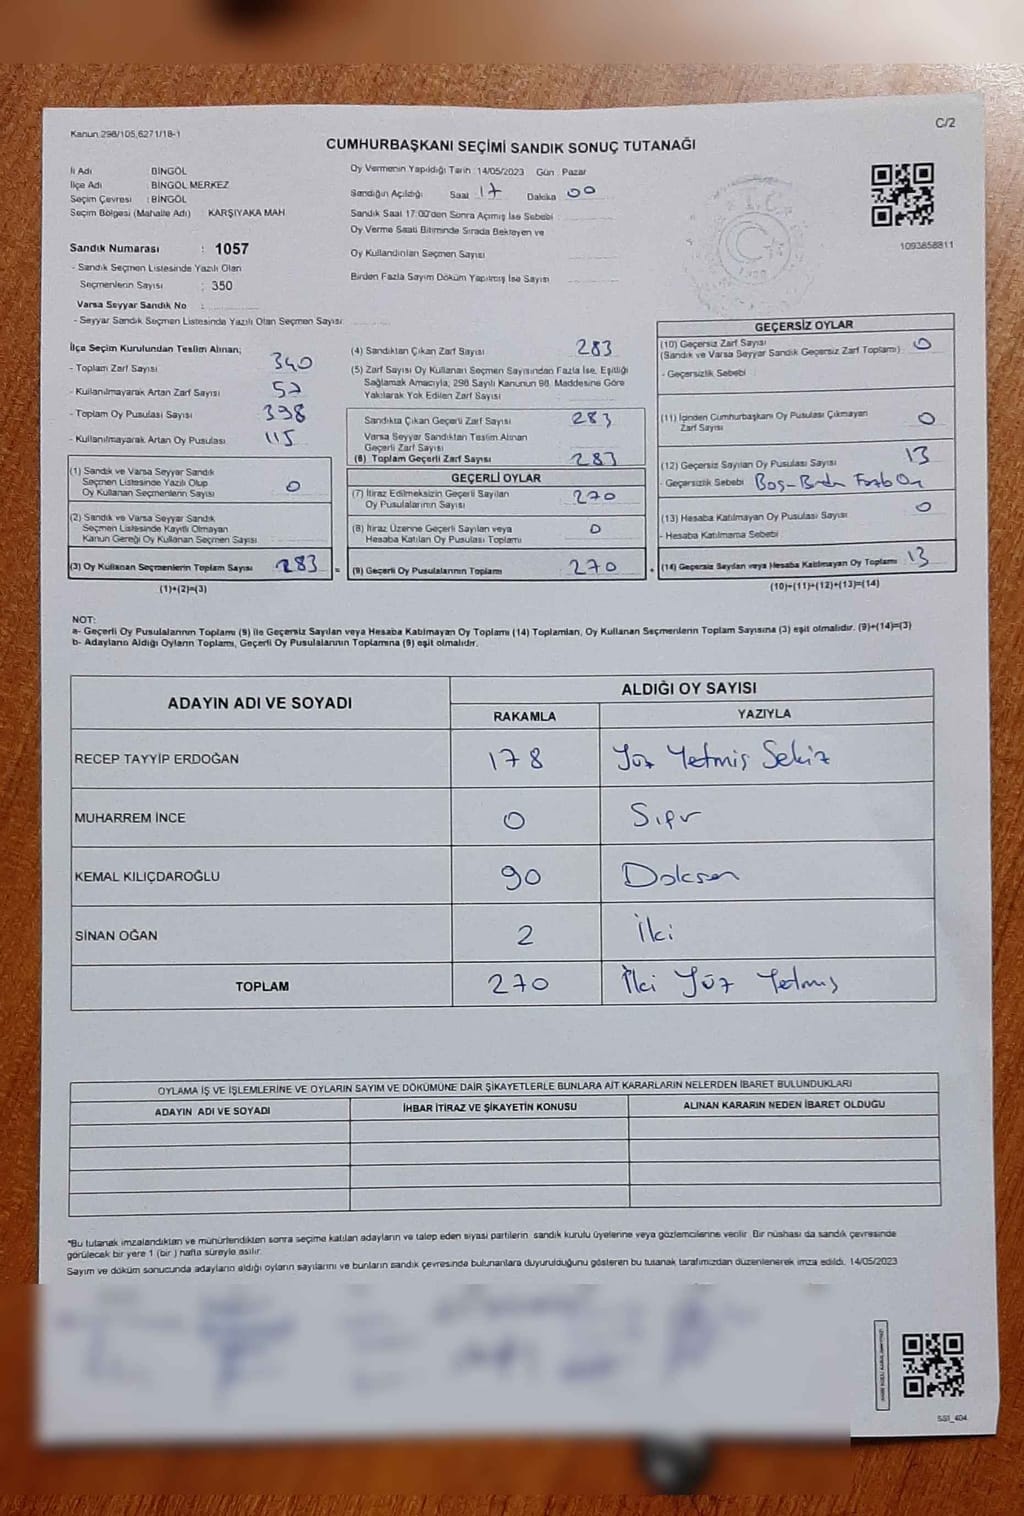 Kanun 298/105,6271/18-1
C/2
CUMHURBAŞKANI SEÇİMİ SANDIK SONUÇ TUTANAĞI
İl Adı BİNGÖL
İlçe Adı BİNGÖL MERKEZ
Seçim Çevresi : BİNGÖL
Seçim Bölgesi (Mahalle Adı) KARŞIYAKA MAH
Sandık Numarası : 1057
- Sandık Seçmen Listesinde Yazılı Olan
Seçmenlerin Sayısı : 350
Varsa Seyyar Sandık No :
- Seyyar Sandık Seçmen Listesinde Yazılı Olan Seçmen Sayısı:
Oy Vermenin Yapıldığı Tarih : 14/05/2023 Gün : Pazar
Sandığın Açıldığı Saat 17 Dakika 00
Sandık Saat 17:00'den Sonra Açılmış İse Sebebi
Oy Verme Saati Bitiminde Sırada Bekleyen ve
Oy Kullandırılan Seçmen Sayısı
Birden Fazla Sayım Döküm Yapılmış İse Sayısı
T.C.
1093858811
İlçe Seçim Kurulundan Teslim Alınan;
- Toplam Zarf Sayısı 340
- Kullanılmayarak Artan Zarf Sayısı 57
- Toplam Oy Pusulası Sayısı 398
- Kullanılmayarak Artan Oy Pusulası 115
(1) Sandık ve Varsa Seyyar Sandık
Seçmen Listesinde Yazılı Olup
Oy Kullanan Seçmenlerin Sayısı 0
(2) Sandık ve Varsa Seyyar Sandık
Seçmen Listesinde Kayıtlı Olmayan
Kanun Gereği Oy Kullanan Seçmen Sayısı
(3) Oy Kullanan Seçmenlerin Toplam Sayısı 283 =
(1)+(2)=(3)
(4) Sandıktan Çıkan Zarf Sayısı 283
(5) Zarf Sayısı Oy Kullanan Seçmen Sayısından Fazla İse, Eşitliği
Sağlamak Amacıyla, 298 Sayılı Kanunun 98. Maddesine Göre
Yakılarak Yok Edilen Zarf Sayısı
Sandıkta Çıkan Geçerli Zarf Sayısı 283
Varsa Seyyar Sandıktan Teslim Alınan
Geçerli Zarf Sayısı
(6) Toplam Geçerli Zarf Sayısı 283
GEÇERLİ OYLAR
(7) İtiraz Edilmeksizin Geçerli Sayılan
Oy Pusulalarının Sayısı 270
(8) İtiraz Üzerine Geçerli Sayılan veya
Hesaba Katılan Oy Pusulası Toplamı 0
(9) Geçerli Oy Pusulalarının Toplamı 270 +
GEÇERSİZ OYLAR
(10) Geçersiz Zarf Sayısı
(Sandık ve Varsa Seyyar Sandık Geçersiz Zarf Toplamı) 0
- Geçersizlik Sebebi
(11) İçinden Cumhurbaşkanı Oy Pusulası Çıkmayan
Zarf Sayısı 0
(12) Geçersiz Sayılan Oy Pusulası Sayısı 13
- Geçersizlik Sebebi Boş-Birden Fazla Oy
(13) Hesaba Katılmayan Oy Pusulası Sayısı 0
- Hesaba Katılmama Sebebi
(14) Geçersiz Sayılan veya Hesaba Katılmayan Oy Toplamı 13
(10)+(11)+(12)+(13)=(14)
NOT:
a- Geçerli Oy Pusulalarının Toplamı (9) ile Geçersiz Sayılan veya Hesaba Katılmayan Oy Toplamı (14) Toplamları, Oy Kullanan Seçmenlerin Toplam Sayısına (3) eşit olmalıdır. (9)+(14)=(3)
b- Adayların Aldığı Oyların Toplamı, Geçerli Oy Pusulalarının Toplamına (9) eşit olmalıdır.
ADAYIN ADI VE SOYADI ALDIĞI OY SAYISI
RAKAMLA YAZIYLA
RECEP TAYYİP ERDOĞAN 178 Yüz Yetmiş Sekiz
MUHARREM İNCE 0 Sıfır
KEMAL KILIÇDAROĞLU 90 Doksan
SİNAN OĞAN 2 İki
TOPLAM 270 İki Yüz Yetmiş
OYLAMA İŞ VE İŞLEMLERİNE VE OYLARIN SAYIM VE DÖKÜMÜNE DAİR ŞİKAYETLERLE BUNLARA AİT KARARLARIN NELERDEN İBARET BULUNDUKLARI
ADAYIN ADI VE SOYADI İHBAR İTİRAZ VE ŞİKAYETİN KONUSU ALINAN KARARIN NEDEN İBARET OLDUĞU
*Bu tutanak imzalandıktan ve mühürlendikten sonra seçime katılan adayların ve talep eden siyasi partilerin sandık kurulu üyelerine veya gözlemcilerine verilir. Bir nüshası da sandık çevresinde
görülecek bir yere 1 (bir ) hafta süreyle asılır.
Sayım ve döküm sonucunda adayların aldığı oyların sayılarını ve bunların sandık çevresinde bulunanlara duyurulduğunu gösteren bu tutanak tarafımızdan düzenlenerek imza edildi. 14/05/2023
SS1_404